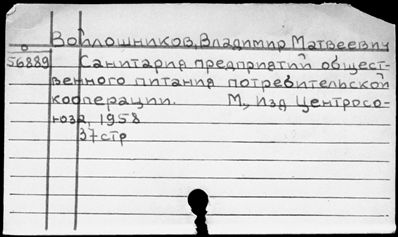 Войлошников, Владимир Матвеевич
56889 Санитария предприятий общест-
венного питания потребительской
кооперации. М., Изд Центросо-
юза, 1958
37 стр